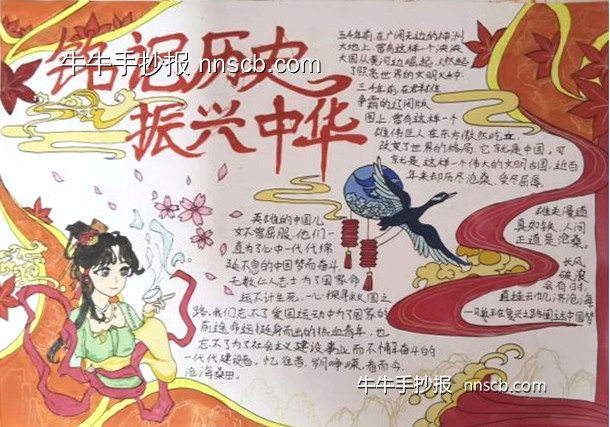 铭记历史
振兴中华
牛牛手抄报 nnscb.com
五千年前,在广阔无边的神洲
大地上,曾有这样一个泱泱
大国从黄河边崛起,燃起
了照亮世界的文明火种.
三千年前,在群雄
争霸的辽阔版
图上,曾有这样一个
雄伟巨人在东方傲然屹立
改变了世界的格局.它就是中国,可
就是这样一个伟大的文明古国,近百
年来却历尽沧桑、受尽屈辱.
英雄的中国儿
女不曾屈服,他们一
直为了心中一代代绵
延不息的中国梦而奋斗,
无数仁人志士为了国家命
运不计生死,一心探寻救国之
路.我们忘不了爱国运动中为了国家的
前途命运挺身而出的热血青年,也
忘不了为了社会主义建设事业而不懈奋斗的
一代代建设者,忆往昔,岁月峥嵘,看而今,
沧海桑田.
雄关漫道
真如铁,人间
正道是沧桑。
长风
破浪
会有时,
直挂云帆济沧海
牛牛手抄报 nnscb.com